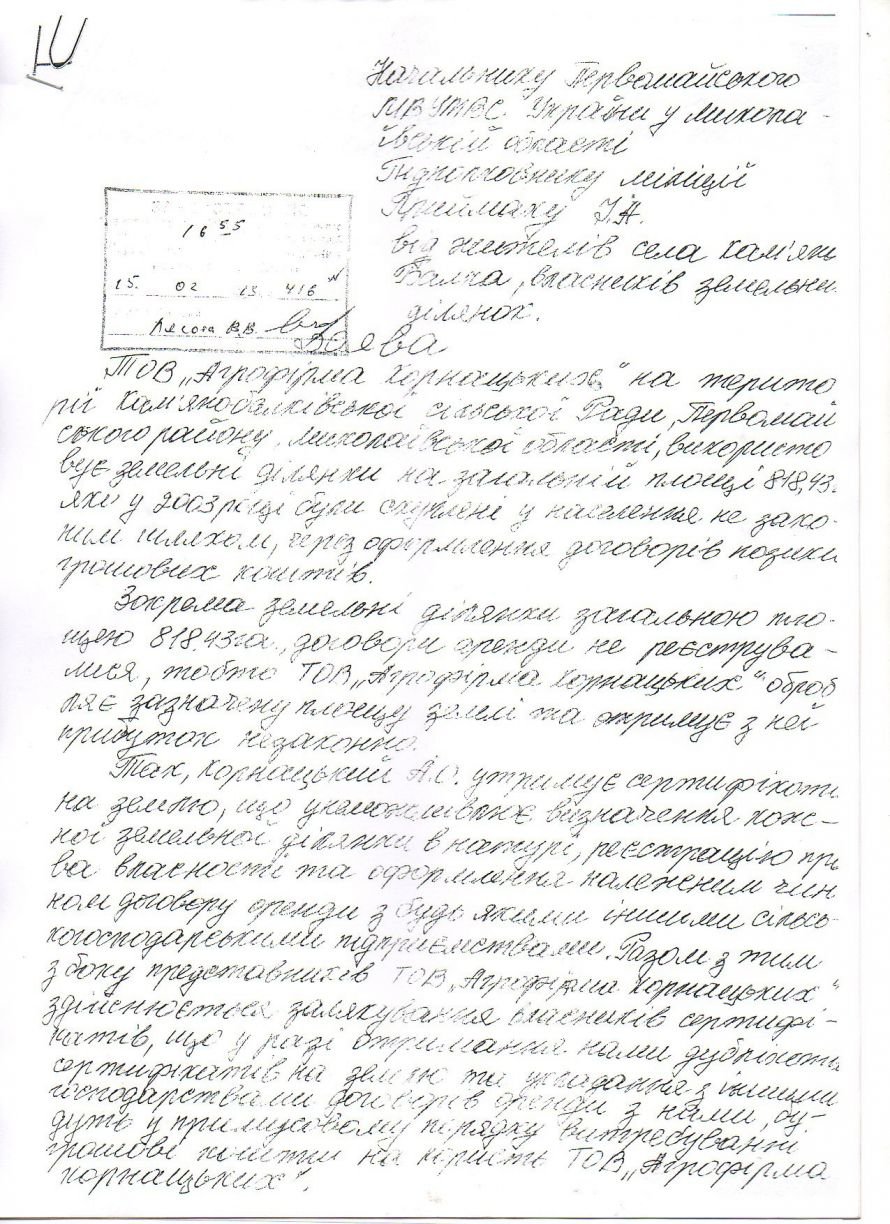 Начальнику Первомайського
МВ УМВС України у Микола-
ївській області
Підполковнику міліції
Приймаку І.А.
від жителів села Кам'яна
Балка, власників земельни
ділянок.
16 55
15. 02 13 416
Лясота В.В.
Заява
ТОВ „Агрофірма Корнацьких" на терито
рії Кам'янобалківської сільської Ради, Первомай
ського району, Миколаївської області, використо
вує земельні ділянки на загальній площі 818,43
які у 2003 році були скуплені у населення не зако-
ним шляхом, через оформлення договорів позики
грошових коштів.
Зокрема земельні ділянки загальною пло-
щею 818,43 га, договори оренди не реєструва-
лися, тобто ТОВ „Агрофірма Корнацьких" оброб
ляє зазначену площу землі та отримує з неї
прибуток незаконно.
Так, Корнацький А.О. утримує сертифікати
на землю, що унеможливлює визначення кож-
ної земельної ділянки в натурі, реєстрацію пра
ва власності та оформлення належним чин
ном договору оренди з будь якими іншими сільсь-
когосподарськими підприємствами. Разом з тим
з боку представників ТОВ „Агрофірма Корнацьких"
здійснюється залякування власників сертифі-
катів, що у разі отримання нами дублікати
сертифікатів на землю та укладання з іншими
господарствами договорів оренди з нами, бу-
дуть у примусовому порядку витребуванні
грошові кошти на користь ТОВ „Агрофірма
Корнацьких".